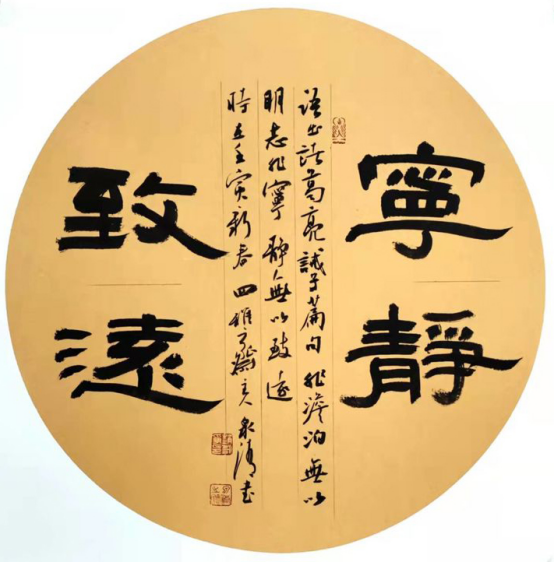 寧靜
致遠
語出諸葛亮誡子篇句非澹泊無以
明志非寧靜無以致遠
時在壬寅新春四維齋主泉清書